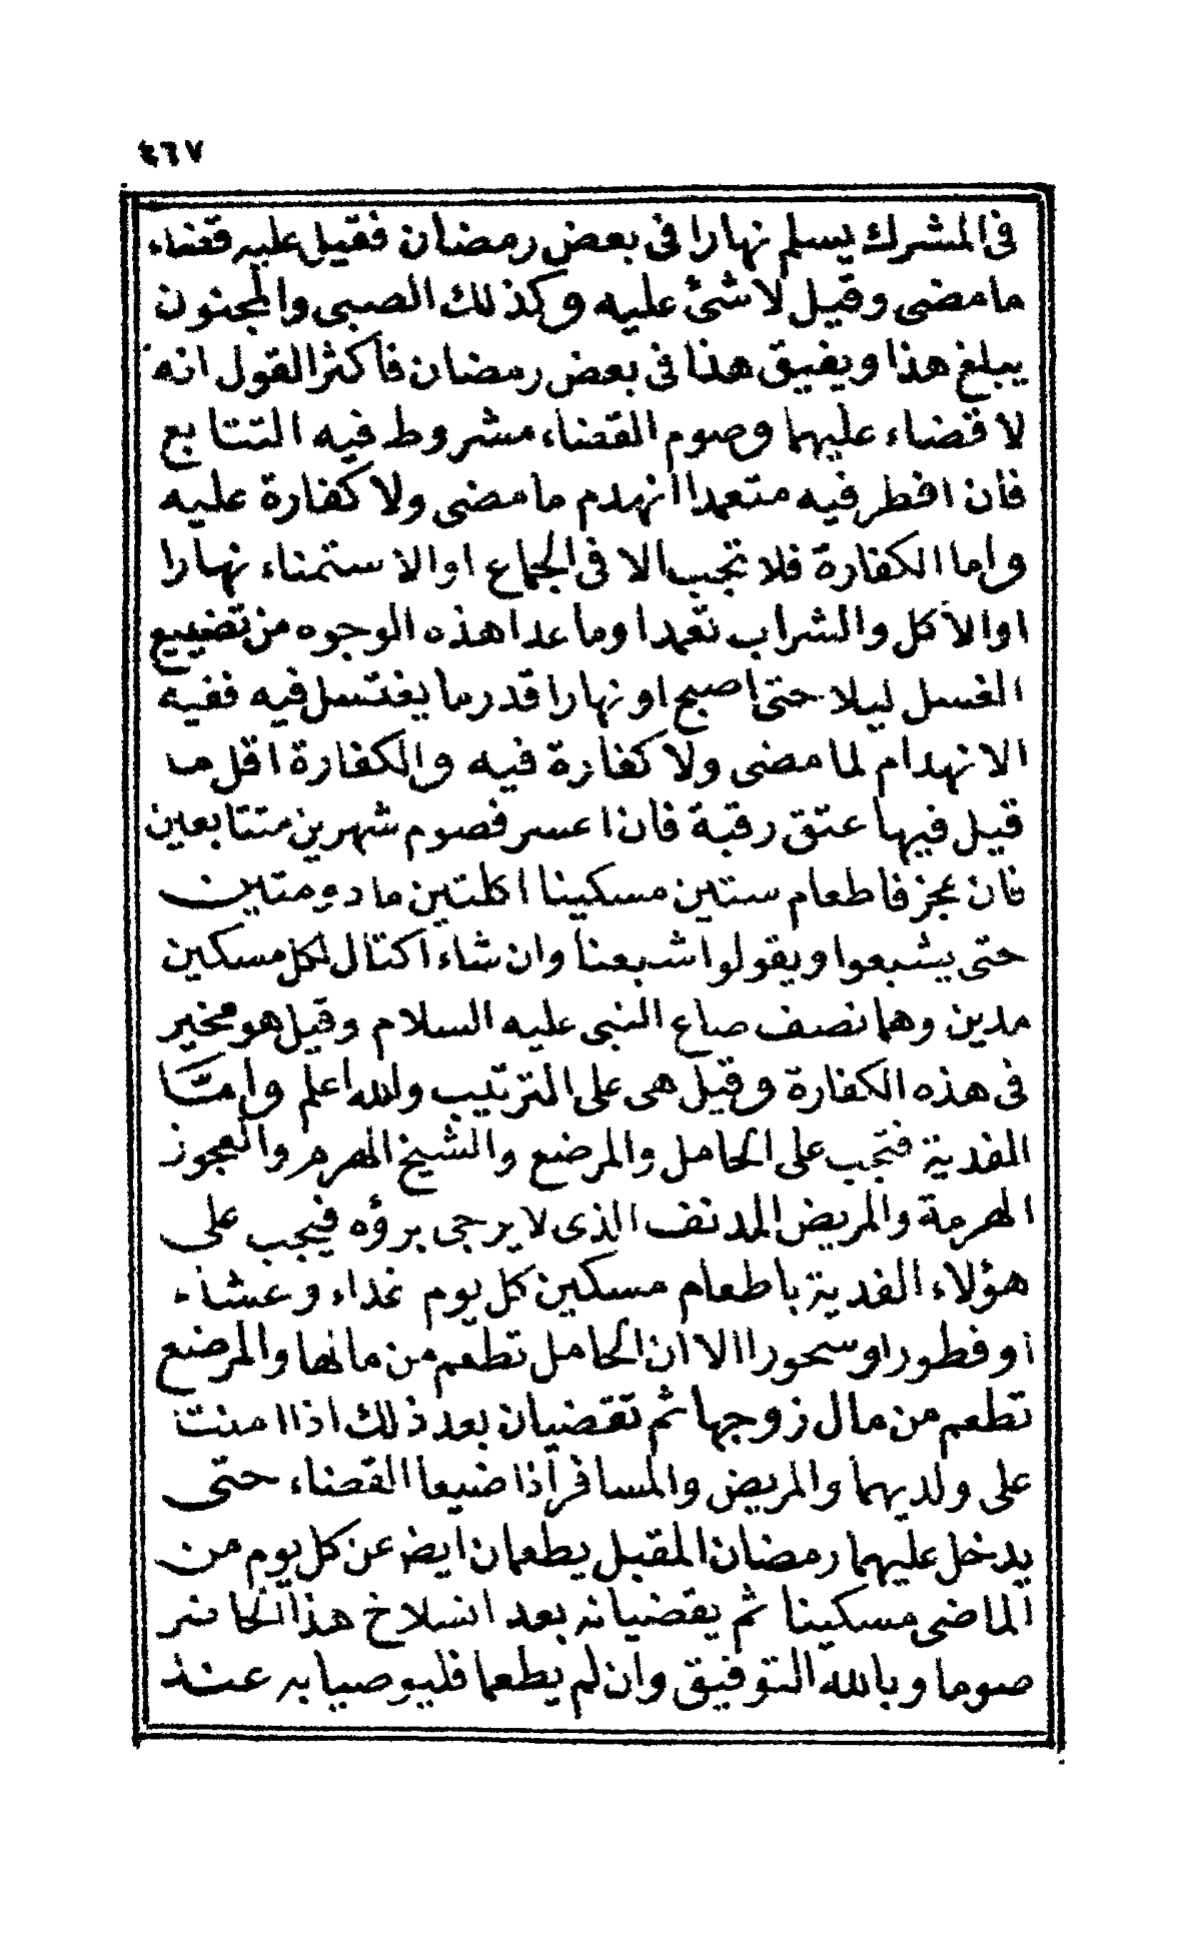 ٤٦٧
فى المشرك يسلم نهارا فى بعض رمضان فقيل عليه قضاء
ما مضى وقيل لا شئ عليه وكذلك الصبى والمجنون
يبلغ هذا ويفيق هذا فى بعض رمضان فأكثر القول انه
لا قضاء عليهما وصوم القضاء مشروط فيه التتابع
فأن افطر فيه متعمدا انهدم ما مضى ولا كفارة عليه
واما الكفارة فلا تجب الا فى الجماع او الاستمناء نهارا
او الأكل والشراب تعمدا وما عدا هذه الوجوه من تضييع
الغسل ليلا حتى اصبح او نهارا قدر ما يغتسل فيه ففيه
الانهدام لما مضى ولا كفارة فيه والكفارة اقل ما
قيل فيها عتق رقبة فان اعسر فصوم شهرين متتابعين
فان عجز فاطعام ستين مسكينا اكلتين مادومتين
حتى يشبعوا ويقولوا شبعنا وان شاء اكتال لكل مسكين
مدين وهما نصف صاع النبى عليه السلام وقيل هو مخير
فى هذه الكفارة وقيل هى على الترتيب والله اعلم وامّا
الفدية فتجب على الحامل والمرضع والشيخ الهرم والعجوز
الهرمة والمريض المدنف الذى لا يرجى برؤه فيجب على
هؤلاء الفدية باطعام مسكين كل يوم غداء وعشاء
او فطورا وسحورا الا ان الحامل تطعم من مالها والمرضع
تطعم من مال زوجها ثم تقضيان بعد ذلك اذا امنتا
على ولديهما والمريض والمسافر اذا ضيعا القضاء حتى
يدخل عليهما رمضان المقبل يطعمان ايض عن كل يوم من
الماضى مسكينا ثم يقضيانه بعد انسلاخ هذا الحاضر
صوما وبالله التوفيق وان لم يطعما فليوصيا به عند